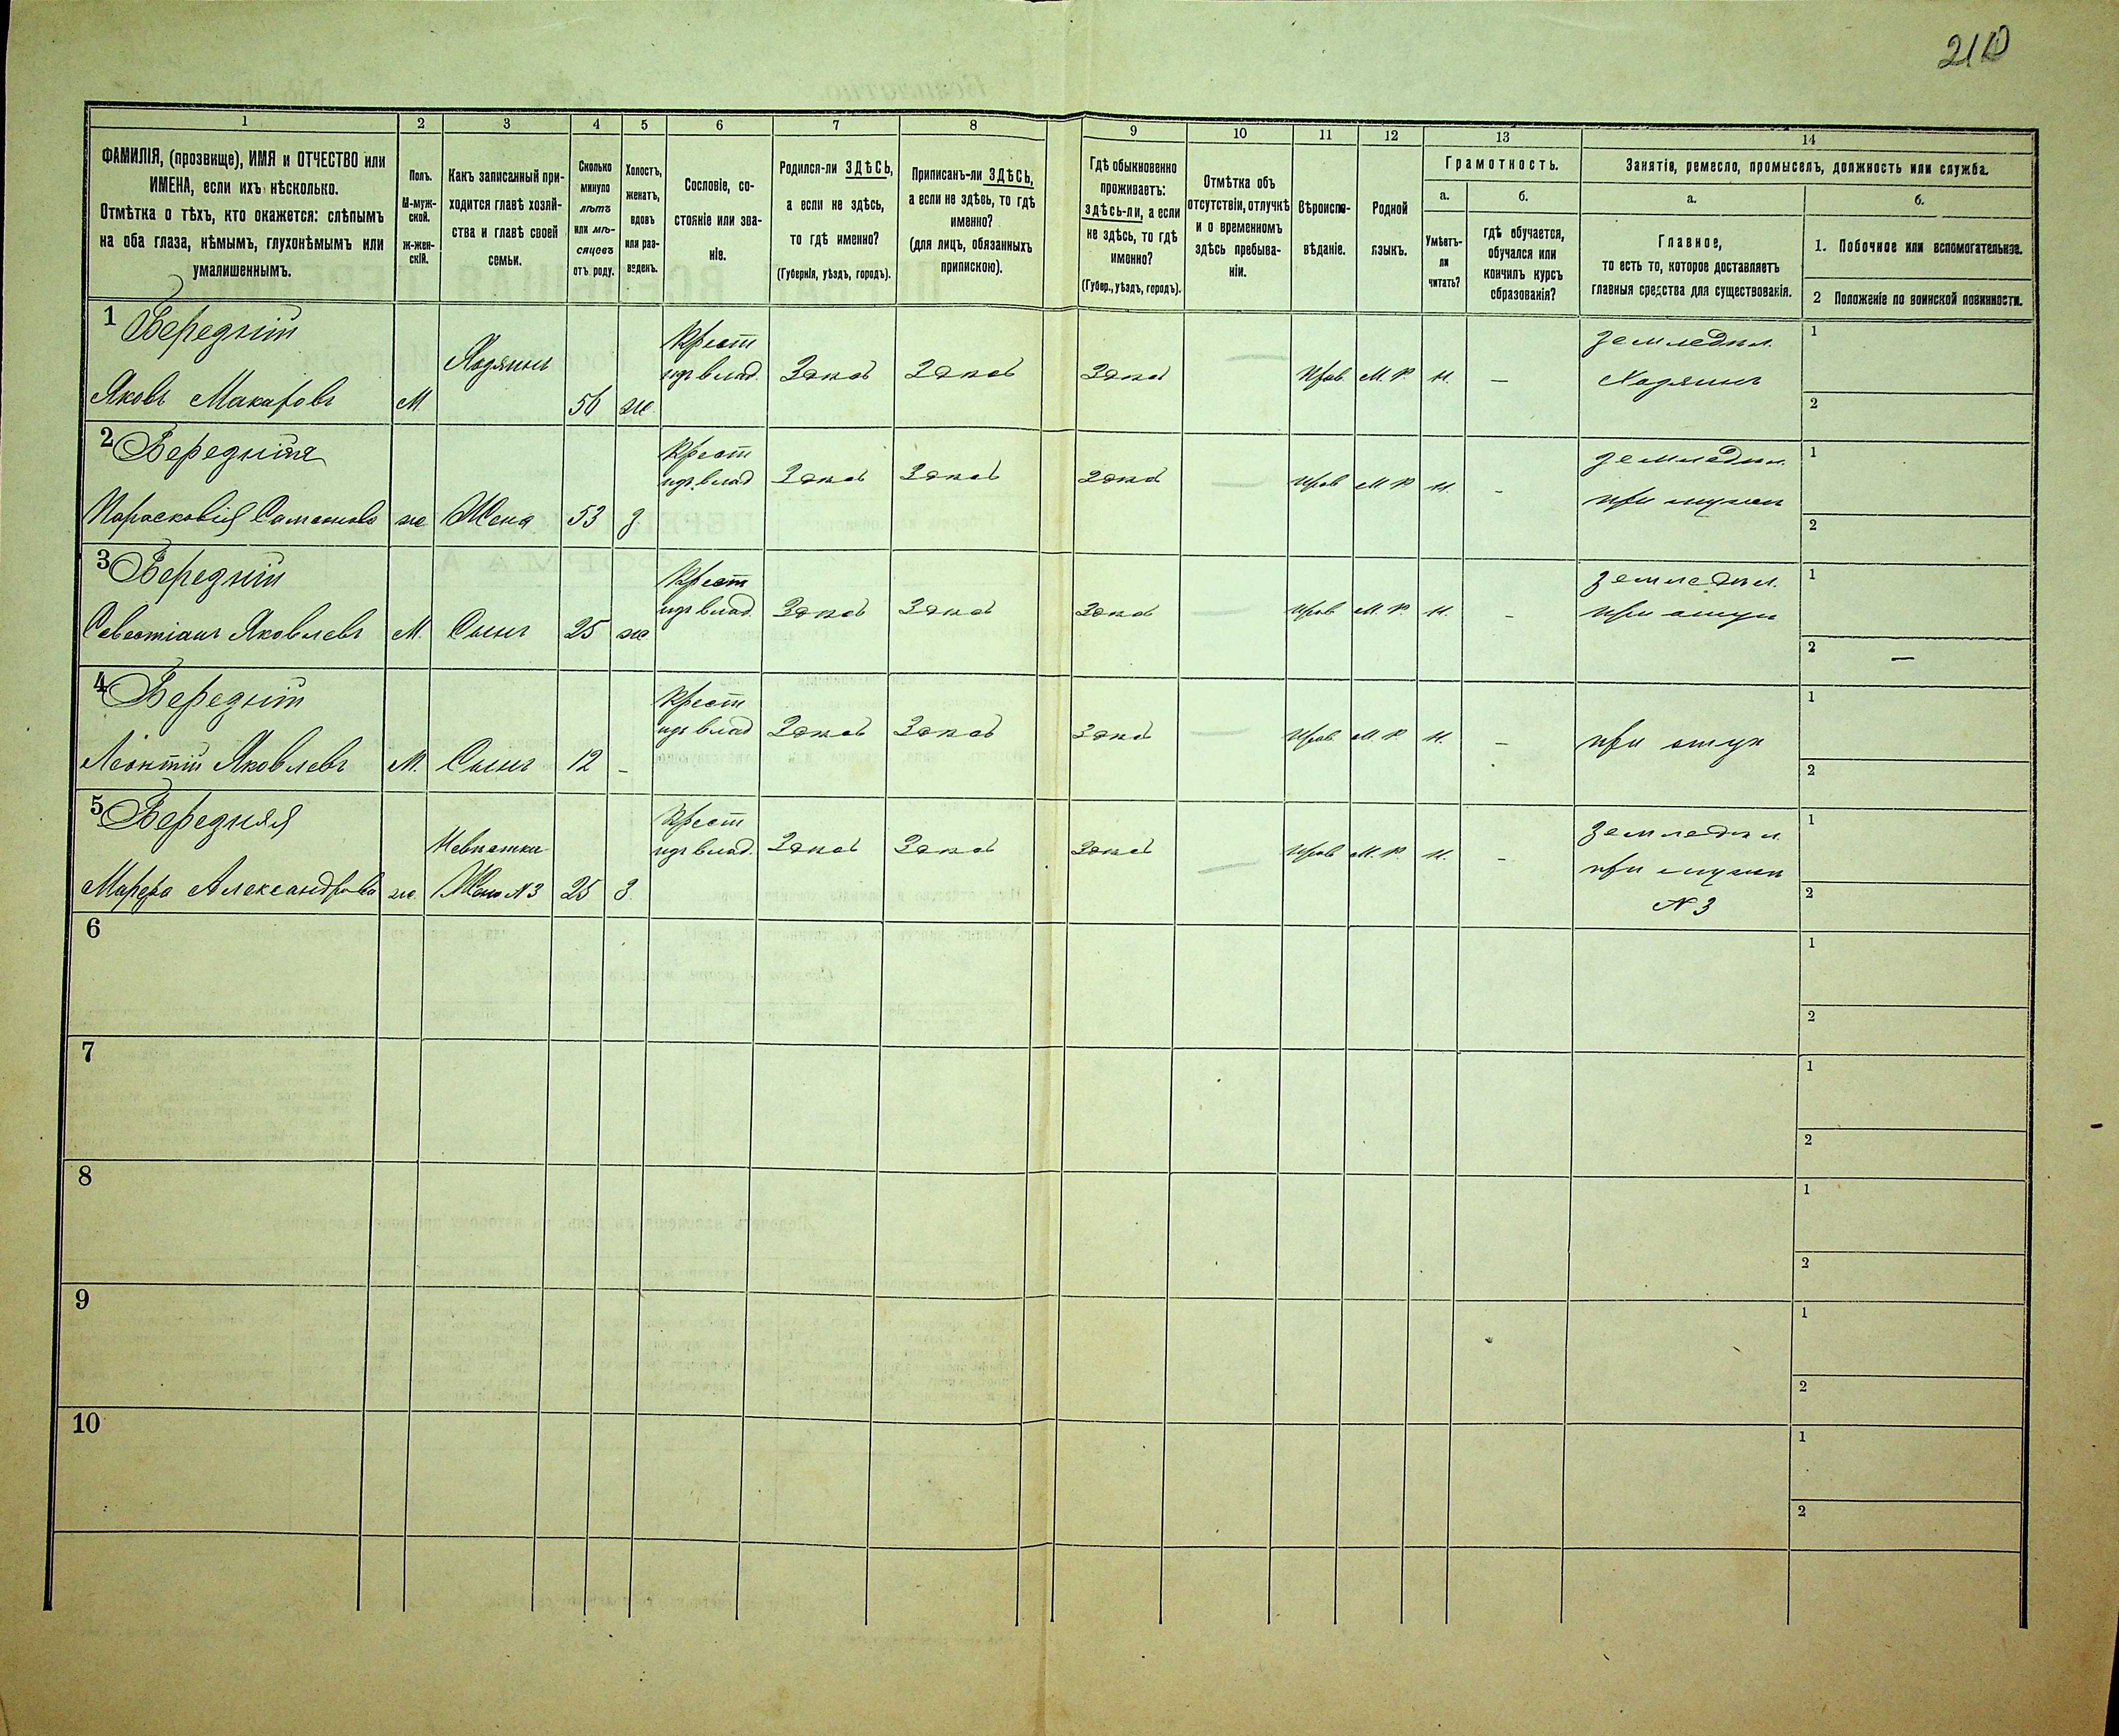 210
1 2 3 4 5 6 7 8 9 10 11 12 13 14
ФАМИЛІЯ, (прозвище), ИМЯ и ОТЧЕСТВО или
ИМЕНА, если ихъ нѣсколько.
Отмѣтка о тѣхъ, кто окажется: слѣпымъ
на оба глаза, нѣмымъ, глухонѣмымъ или
умалишеннымъ.
Полъ.
М-муж-
ской.
ж-жен-
скій.
Какъ записанный при-
ходится главѣ хозяй-
ства и главѣ своей
семьи.
Сколько
минуло
лѣтъ
или мѣ-
сяцевъ
отъ роду.
Холостъ,
женатъ,
вдовъ
или раз-
веденъ.
Сословіе, со-
стояніе или зва-
ніе.
Родился-ли ЗДѢСЬ,
а если не здѣсь,
то гдѣ именно?
(Губернія, уѣздъ, городъ).
Приписанъ-ли ЗДѢСЬ,
а если не здѣсь, то гдѣ
именно?
(для лицъ, обязанныхъ
припискою).
Гдѣ обыкновенно
проживаетъ:
здѣсь-ли, а если
не здѣсь, то гдѣ
именно?
(Губер., уѣздъ, городъ).
Отмѣтка объ
отсутствіи, отлучкѣ
и о временномъ
здѣсь пребыва-
ніи.
Вѣроиспо-
вѣданіе.
Родной
языкъ.
Грамотность.
а.
Умѣетъ-
ли
читать?
б.
гдѣ обучается,
обучался или
кончилъ курсъ
образованія?
Занятія, ремесло, промыселъ, должность или служба.
а.
Главное,
то есть то, которое доставляетъ
главныя средства для существованія.
б.
1. Побочное или вспомогательное.
2 Положеніе по воинской повинности.
1 Бередній
Яковъ Макаровъ М. Хозяинъ 56 ж Крест
изъ влад. Здѣсь Здѣсь Здѣсь — Прав. М. Р. Н. — земледѣл.
Хозяинъ 1
2
2 Бередняя
Парасковія Самсонова ж Жена 53 з. Крест
изъ влад Здѣсь Здѣсь Здѣсь — Прав М Р Н. - земледѣл.
при мужѣ 1
2
3 Бередній
Севестіанъ Яковлевъ М. Сынъ 25 ж Крест
изъ влад. Здѣсь Здѣсь Здѣсь — Прав М. Р. Н. - земледѣл.
при отцу 1
2 —
4 Бередній
Леонтій Яковлевъ М. Сынъ 12 - Крест
изъ влад Здѣсь Здѣсь Здѣсь — Прав. М. Р. Н. - при отцу 1
2
5 Бередняя
Марфа Александрова ж. Невѣстка
Жена N 3 25 З. Крест
изъ влад. Здѣсь Здѣсь Здѣсь — Прав М. Р. Н. - земледѣл
при мужѣ
N 3 1
2
6 1
2
7 1
2
8 1
2
9 1
2
10 1
2